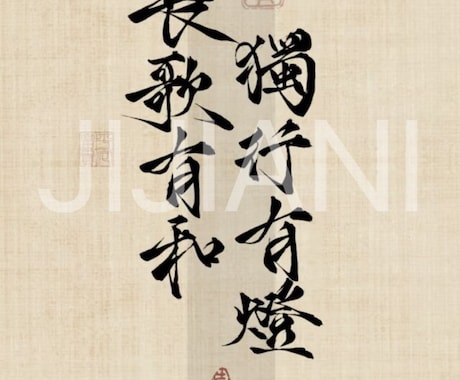 獨行有燈
長歌有和
JIJIANI